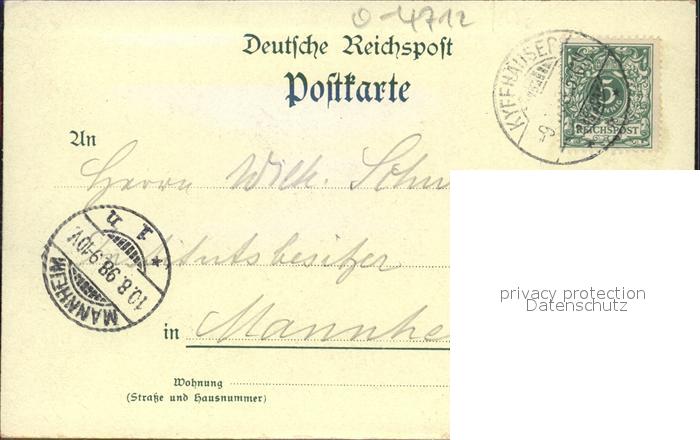 0-4712
Deutsche Reichspost
Postkarte
KYFFHÄUSER
5
REICHSPOST
An
Herrn Wilh.
Institutsbesitzer
in Mannhe
MANNHEIM
10.8.98.9-10V.
1 n
Wohnung
(Straße und Hausnummer)
privacy protection
Datenschutz